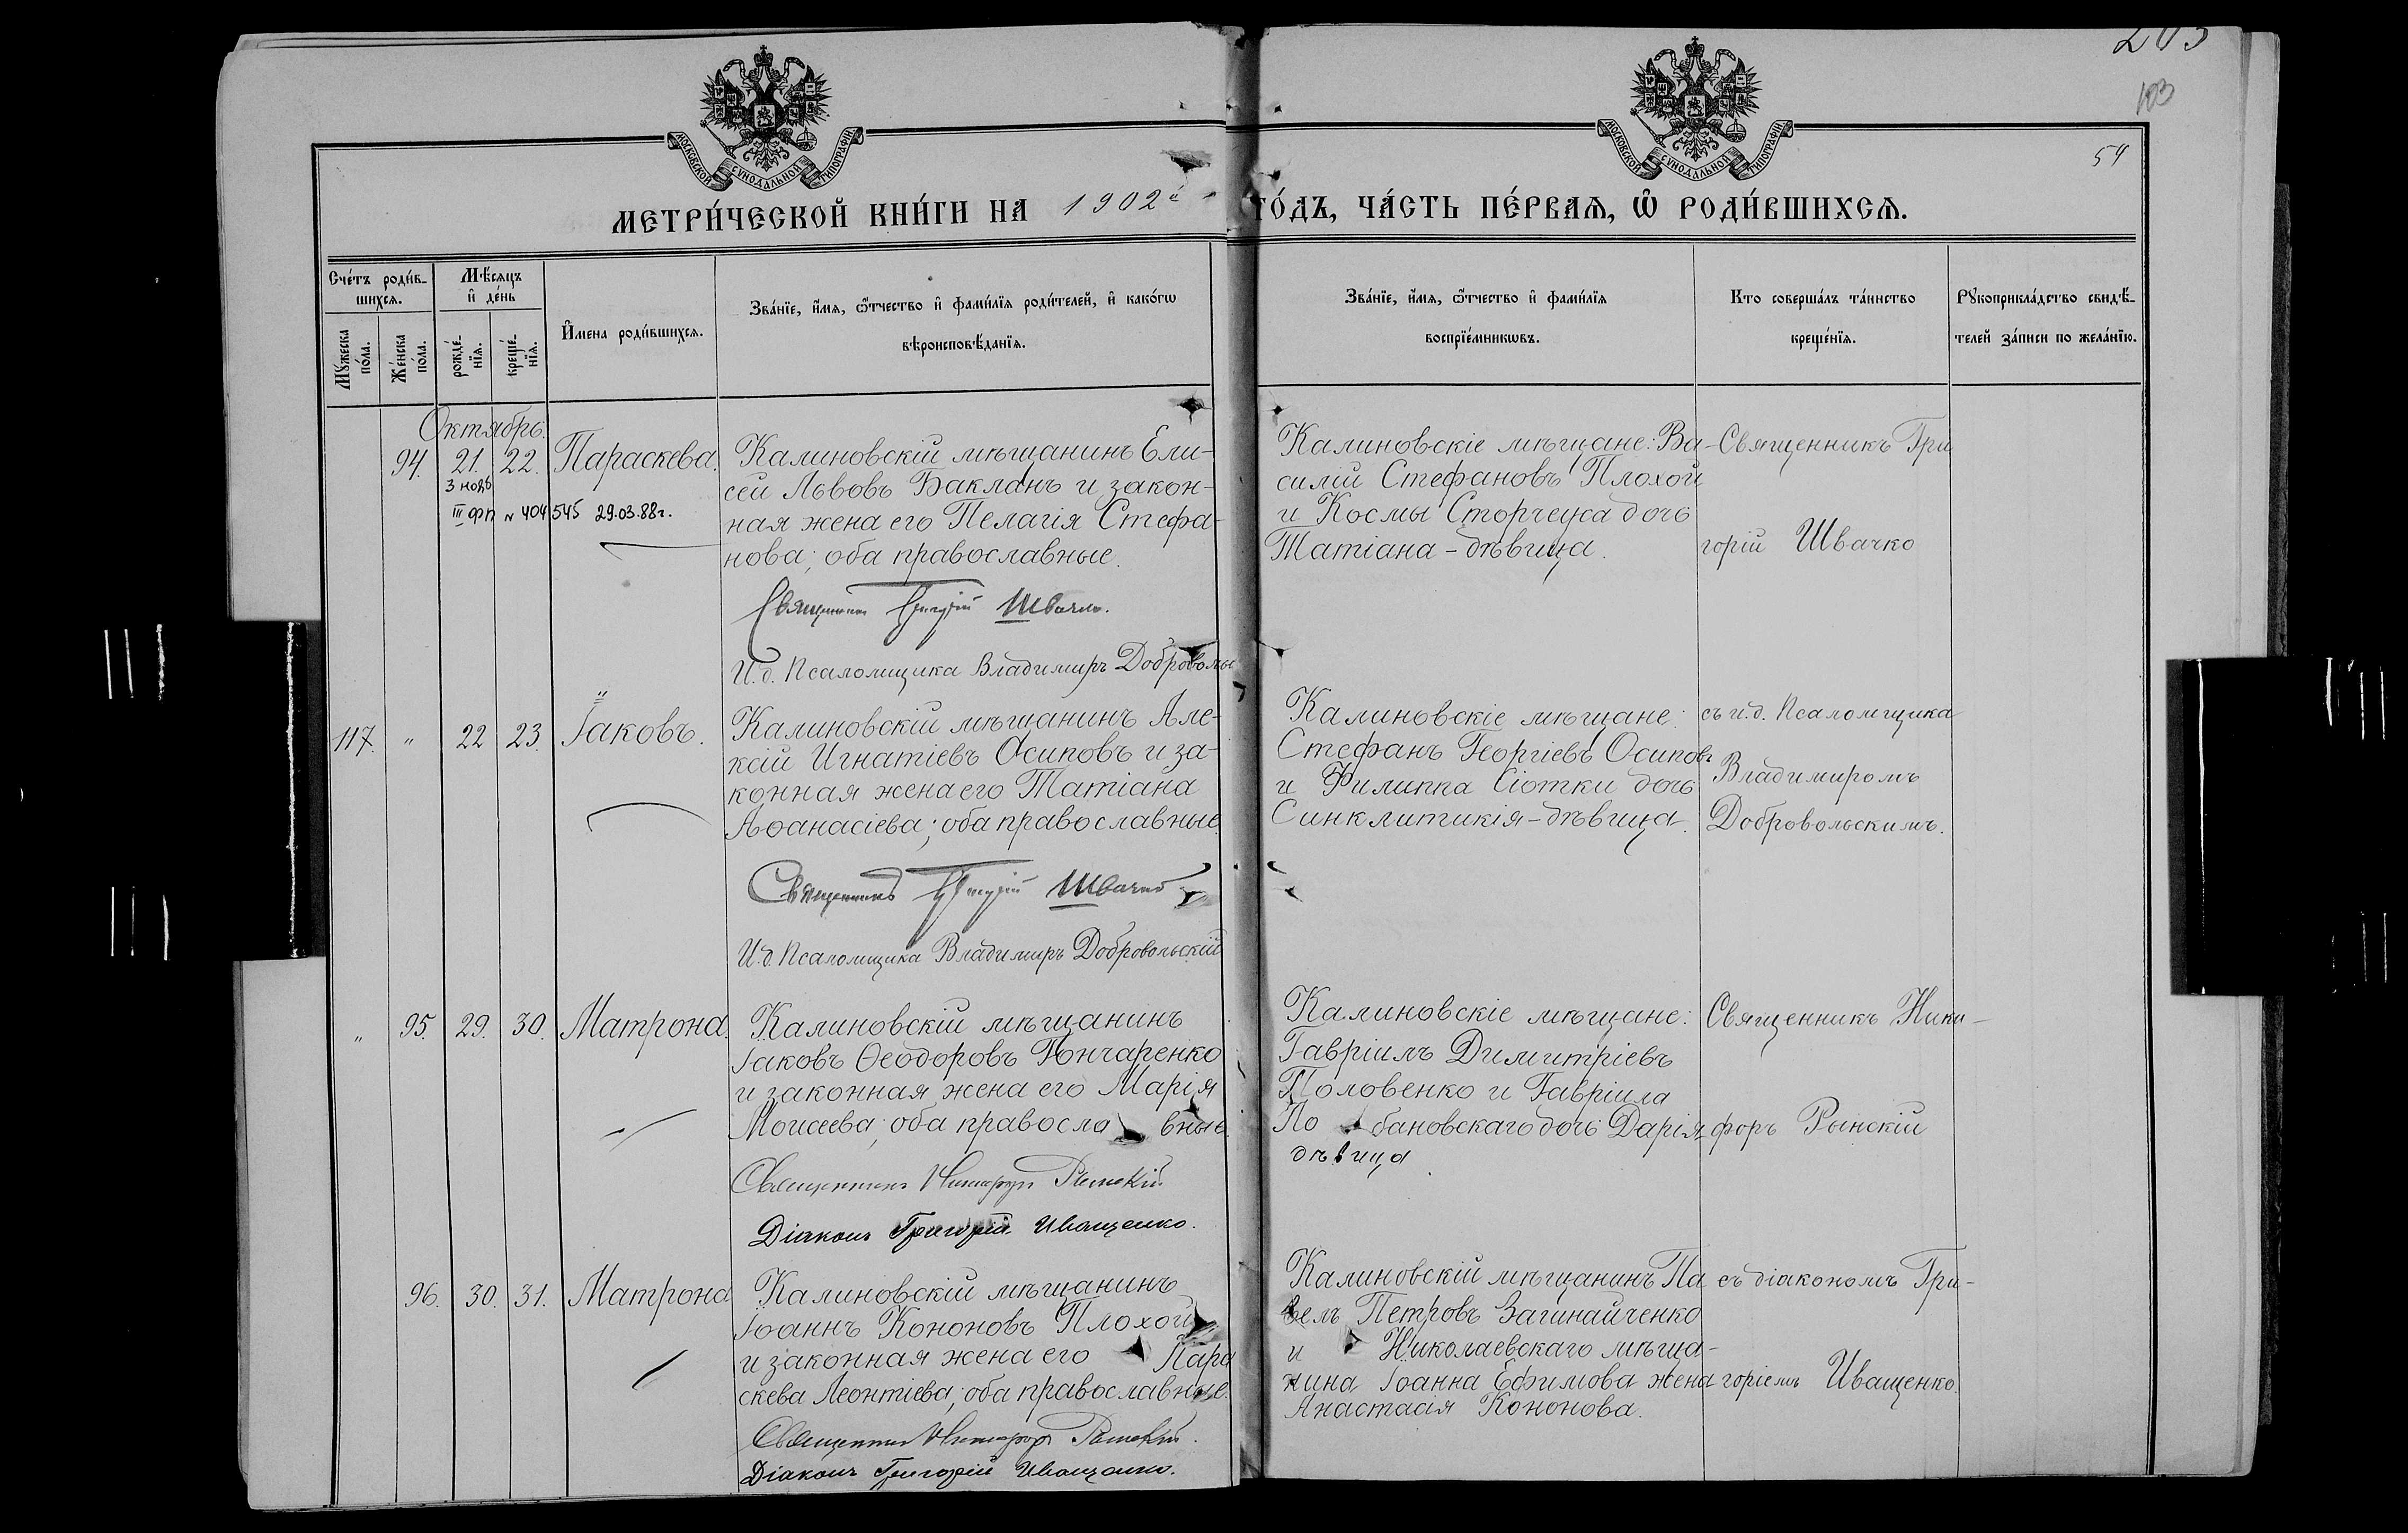 203
103
54
МОСКОВСКОЙ СУНОДАЛЬНОЙ ТИПОГРАФІИ
МОСКОВСКОЙ СУНОДАЛЬНОЙ ТИПОГРАФІИ
МЕТРИ́ЧЕСКОЙ КНИ́ГИ НА 1902й
ГО́ДЪ, ЧА́СТЬ ПЕ́РВАѦ, Ѡ҆ РОДИ́ВШИХСѦ.
Сче́тъ роди́в-
шихсѧ.
Мꙋ́жеска
по́ла.
Же́нска
по́ла.
Мѣ́сѧцъ
и҆ де́нь
рожде́-
нїѧ.
креще́-
нїѧ.
И҆мена роди́вшихсѧ.
Зва́нїе, и҆́мѧ, ѻ҆́тчество и҆ фами́лїѧ роди́телей, и҆ како́гѡ
вѣроисповѣ́данїѧ.
Зва́нїе, и҆́мѧ, ѻ҆́тчество и҆ фами́лїѧ
воспрїе́мникѡвъ.
Кто соверша́лъ та́инство
креще́нїѧ.
Рꙋкоприкла́дство свидѣ́-
телей за́писи по жела́нїю.
Октябрь.
94. 21. 22. Параскева.
3 нояб
III ФП N 404545 29.03.88г.
Калиновскій мѣщанинъ Ели-
сей Львовъ Бакланъ и закон-
ная жена его Пелагія Стефа-
нова; оба православные.
Священникъ Григорій Швачко.
И.д. Псаломщика Владимиръ Доброволь
Калиновскіе мѣщане: Ва-
силій Стефановъ Плохой
и Космы Сторчеуса дочь
Татіана - дѣвица.
Священникъ Гри
горій Швачко
117. " 22 23. Іаковъ.
Калиновскій мѣщанинъ Але-
ксій Игнатіевъ Осиповъ и за-
конная жена его Татіана
Аѳанасіева; оба православные.
Священникъ Григорій Швачко
И.д. Псаломщика Владимиръ Добровольскій
Калиновскіе мѣщане:
Стефанъ Георгіевъ Осиповъ
и Филиппа Сіотки дочь
Синклитикія - дѣвица.
съ и.д. Псаломщика
Владимиромъ
Добровольскимъ.
" 95. 29. 30. Матрона.
Калиновскій мѣщанинъ
Іаковъ Ѳеодоровъ Гончаренко
и законная жена его Марія
Моисеева; оба правосла вные.
Священникъ Никифоръ Рынскій
Діаконъ Григорій Иващенко.
Калиновскіе мѣщане:
Гавріилъ Димитріевъ
Половенко и Гавріила
По бановскаго дочь Дарія
дѣвица.
Священникъ Ники-
форъ Рынскій
96. 30. 31. Матрона
Калиновскій мѣщанинъ
Іоаннъ Кононовъ Плохой
и законная жена его Пара
скева Леонтіева; оба православные.
Священникъ Никифоръ Рынскій.
Діаконъ Григорій Иващенко.
Калиновскій мѣщанинъ Па
велъ Петровъ Вагинайченко
и Николаевскаго мѣща-
нина Іоанна Ефимова жена
Анастасія Кононова.
съ діакономъ Гри-
горіемъ Иващенко.